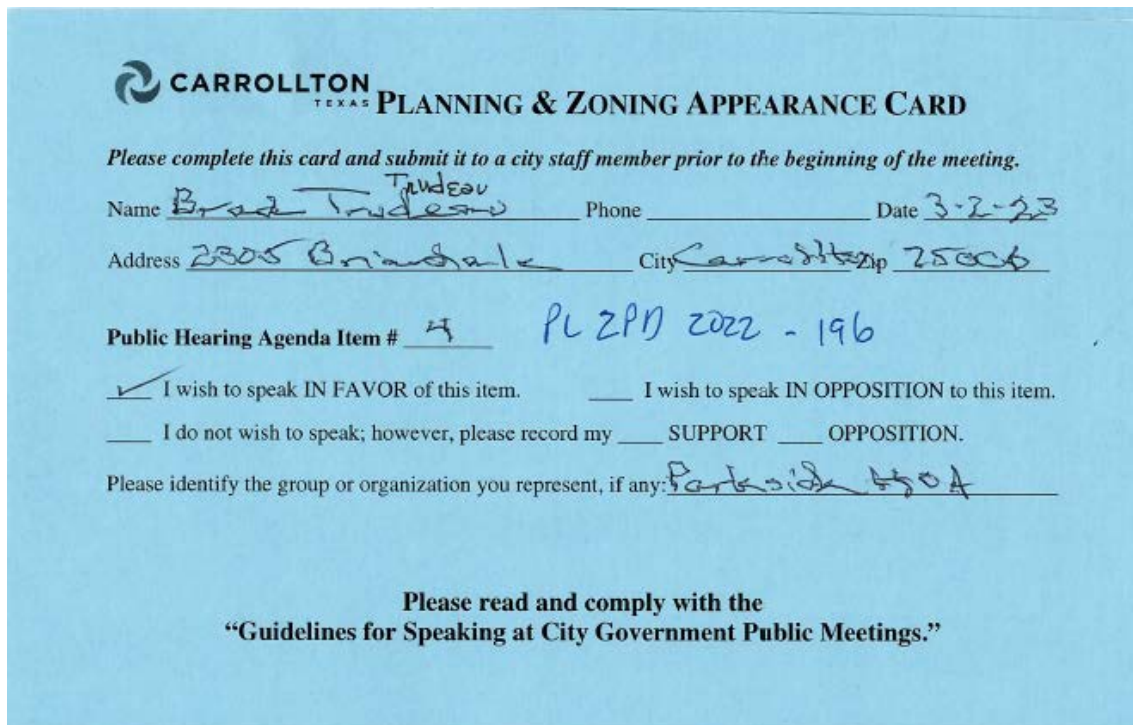 CARROLLTON
TEXAS
PLANNING & ZONING APPEARANCE CARD
Please complete this card and submit it to a city staff member prior to the beginning of the meeting.
Trudeau
Name Brad Trudeau Phone Date 3-2-23
Address 2305 City Carrollton Zip 75006
Public Hearing Agenda Item # 4 PLZPD 2022 - 196
✓ I wish to speak IN FAVOR of this item. ___ I wish to speak IN OPPOSITION to this item.
___ I do not wish to speak; however, please record my ___ SUPPORT ___ OPPOSITION.
Please identify the group or organization you represent, if any: Parkside HOA
Please read and comply with the
“Guidelines for Speaking at City Government Public Meetings.”